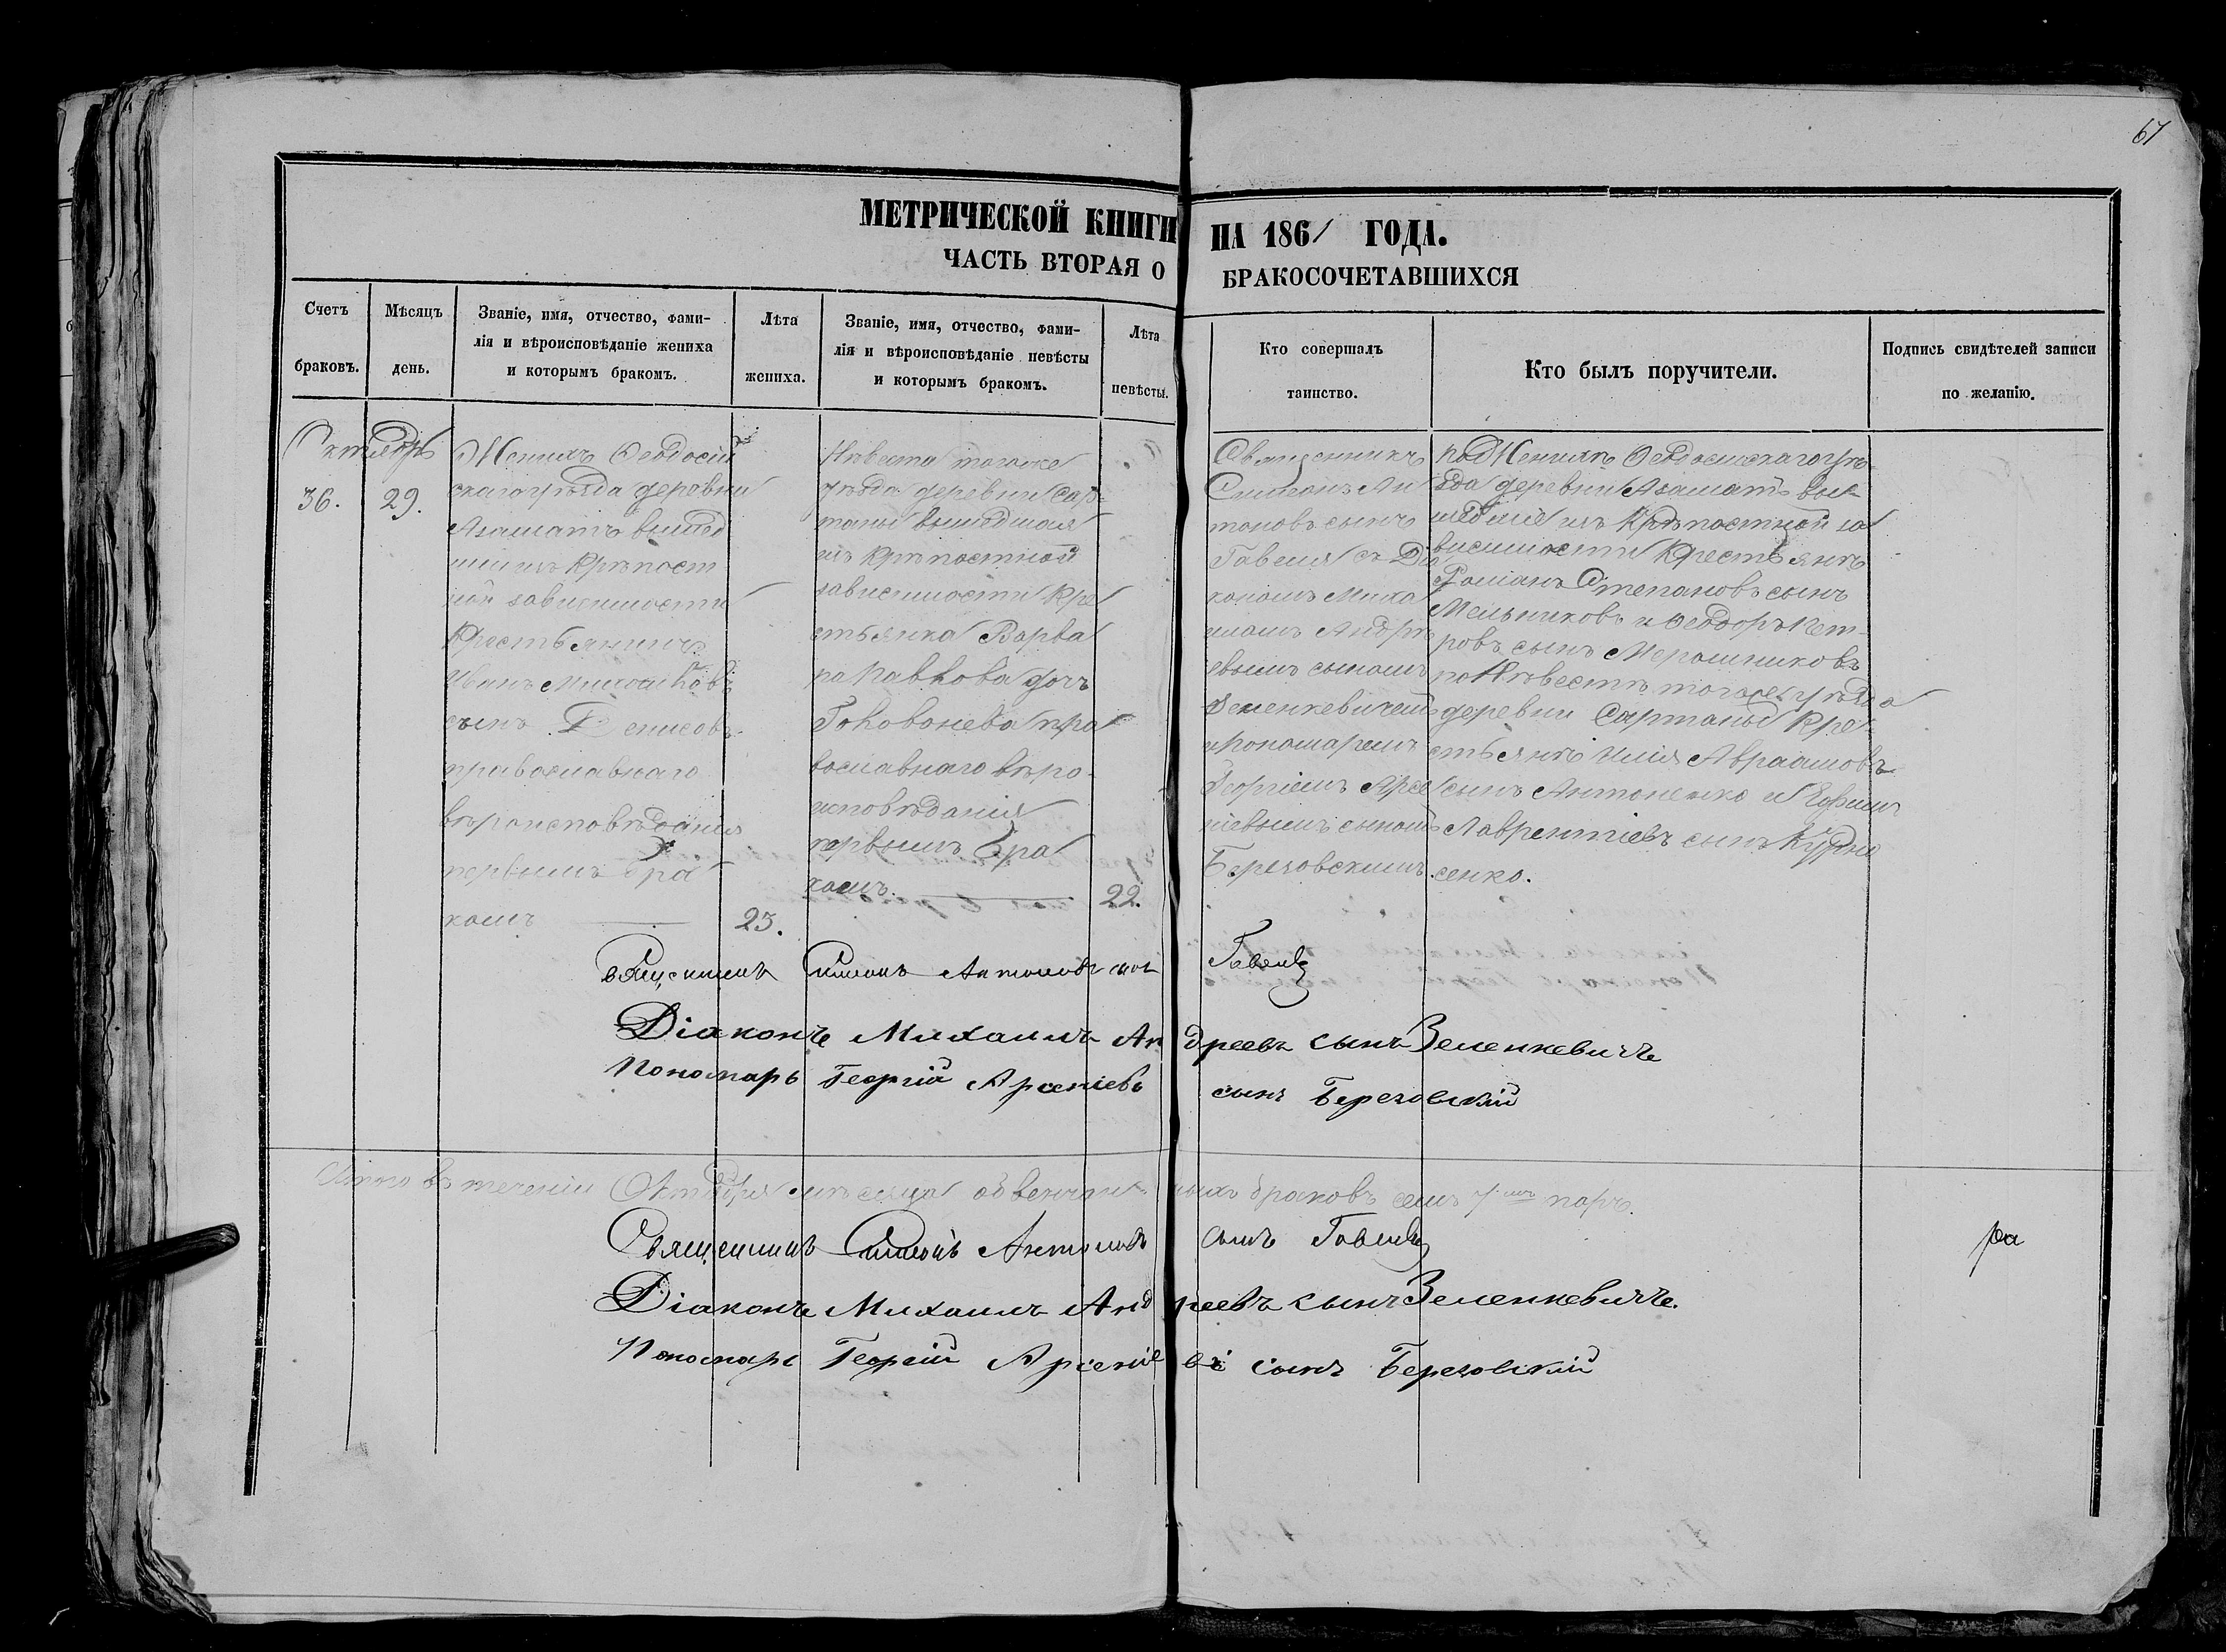 67
МЕТРИЧЕСКОЙ КНИГИ НА 1861 ГОДА.
ЧАСТЬ ВТОРАЯ О БРАКОСОЧЕТАВШИХСЯ
Счетъ браковъ.
Мѣсяцъ день.
Званіе, имя, отчество, фами-
лія и вѣроисповѣданіе жениха
и которымъ бракомъ.
Лѣта жениха.
Званіе, имя, отчество, фами-
лія и вѣроисповѣданіе невѣсты
и которымъ бракомъ.
Лѣта невѣсты.
Кто совершалъ
таинство.
Кто былъ поручители.
Подпись свидѣтелей записи
по желанію.
Октябрь
36. 29.
Женихъ Ѳеодосій
скаго уѣзда деревни
Азаматъ вышед
ши изъ крѣпост
ной зависимости
Крестьянинъ
Иванъ
сынъ Денисовъ
православнаго
вѣроисповѣданія
первымъ бра
комъ 23.
Невеста тогоже
уѣзда деревни Сар
таны вышедшая
изъ крѣпостной
зависимости Кре
стьянка Варва
ра Павлова дочь
православнаго вѣро
исповѣданія
первымъ бра
комъ. 22.
Священникъ
Симеонъ Ан
тоновъ сынъ
съ Діа
кономъ Миха
иломъ Андре
евымъ сыномъ
Зеленкевичемъ
и Пономаремъ
Георгіемъ Арсе
ніевымъ сыномъ
Березовскимъ.
по Женихѣ Ѳеодосійскаго уѣ
зда деревни Азаматъ вы
шедшіе изъ крѣпостной за
висимости Крестьянъ
Романъ Степановъ сынъ
Мельниковъ и Ѳеодоръ Пет
ровъ сынъ Мерошниковъ
по Невестѣ тогоже уѣзда
деревни Сартаны Кре
стьянъ Илія Авраамовъ
сынъ Антоненко и Ефимъ
Лаврентіевъ сынъ
сенко.
Священникъ Симеонъ Антоновъ сынъ
Діаконъ Михаилъ Андреевъ сынъ Зеленкевичъ
Пономарь Георгій Арсеніевъ сынъ Березовскій
Итого въ теченіи Октября мѣсяца обвенчанныхъ браковъ семь 7мь паръ.
Священникъ Симеонъ Антоновъ сынъ
Діаконъ Михаилъ Андреевъ сынъ Зеленкевичъ.
Пономарь Георгій Арсеніевъ сынъ Березовскій